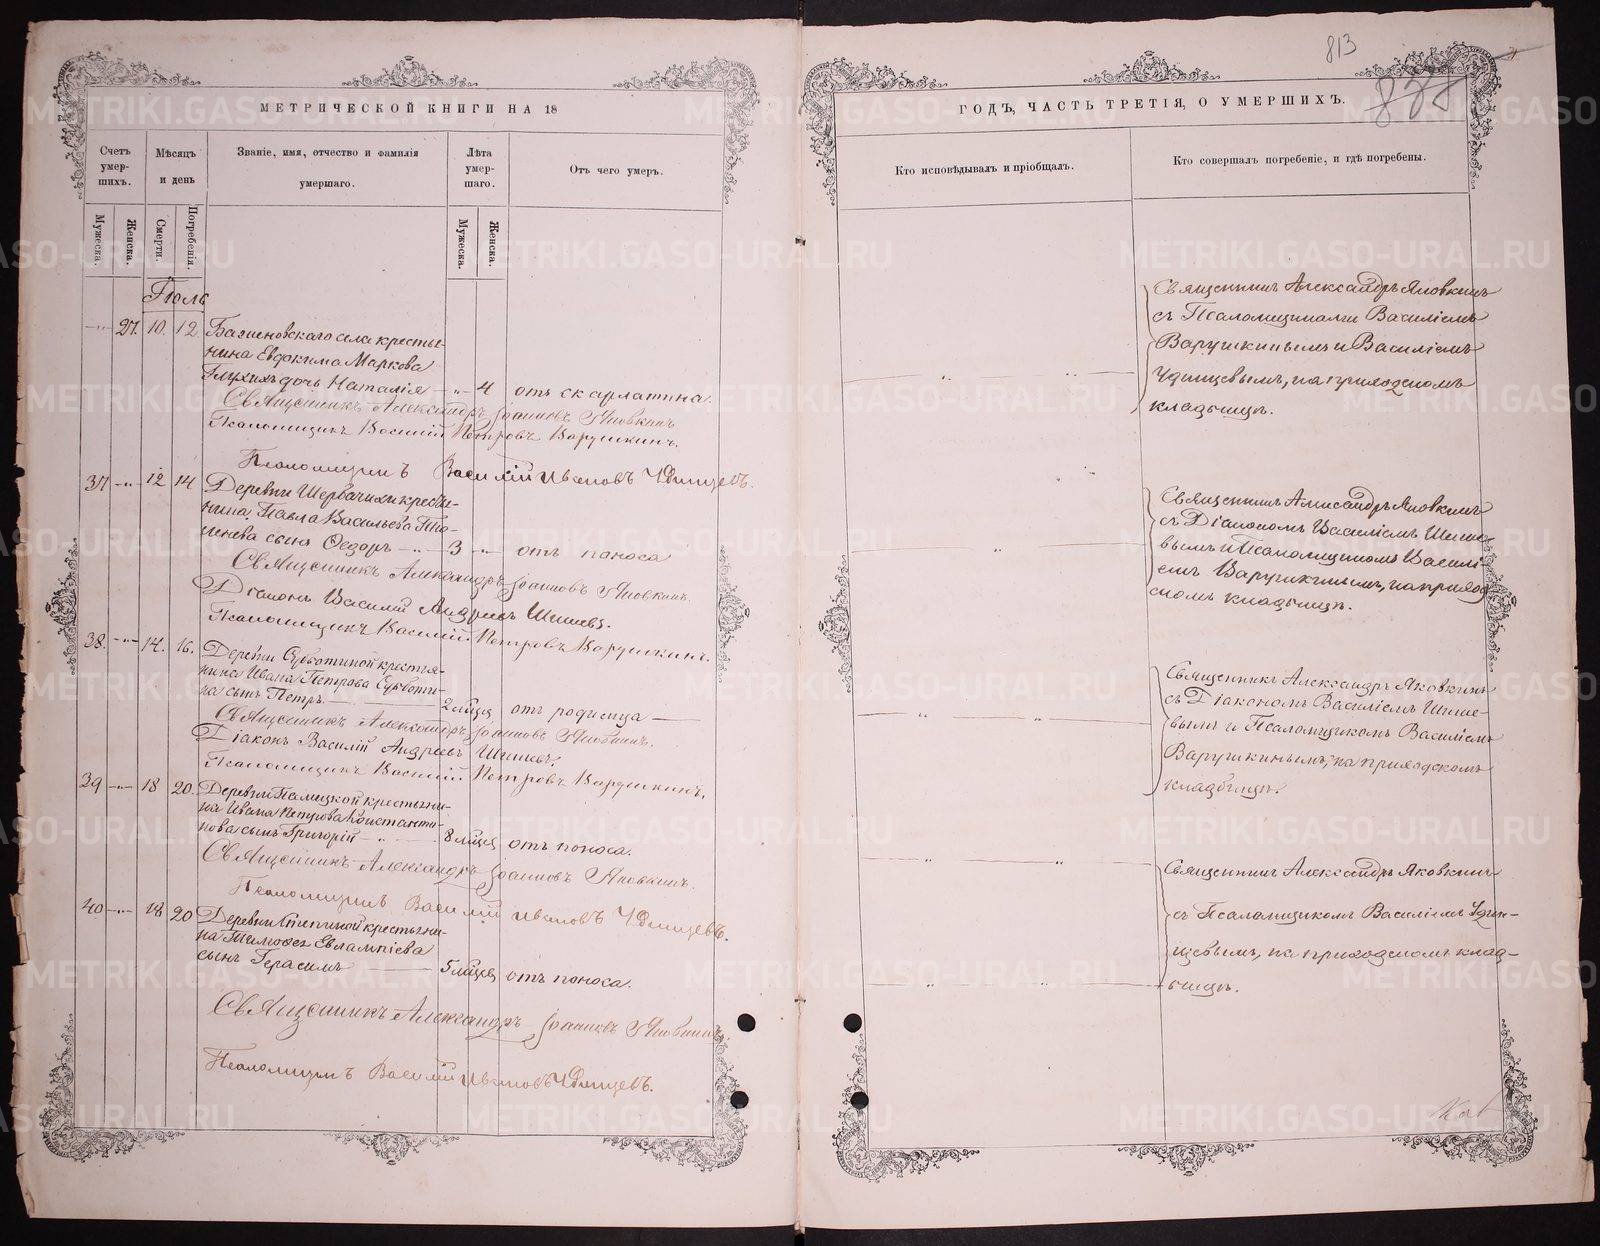 813
838
МЕТРИЧЕСКОЙ КНИГИ НА 18
Счетъ умерших.
Мѣсяцъ и день
Званіе, имя, отчество и фамилія умершаго.
Лѣта умершаго.
Отъ чего умеръ.
Мужеска.
Женска.
Смерти.
Погребенія.
Мужеска.
Женска.
Іюль
27. 10. 12. Баженовскаго села крестья-
нина Евдокима Маркова
Глухихъ дочь Наталія — „ — 4 отъ скарлатина.
Священникъ Александръ Іоанновъ Яковкинъ
Псаломщикъ Василій Петровъ Варушкинъ.
Псаломщикъ Василій Ивановъ Удинцевъ.
37 — „ — 12 14 Деревни Щербачихи крестья-
нина Павла Васильева
сынъ Ѳедоръ — „ — 3 — „ — отъ поноса
Священникъ Александръ Іоанновъ Яковкинъ.
Діаконъ Василій Андреевъ Шишевъ.
Псаломщикъ Василій Петровъ Варушкинъ.
38. — „ — 14. 16. Деревни Субботиной крестья-
нина Ивана Петрова Субботи-
на сынъ Петръ. — 2 мѣсяц отъ родимца —
Священникъ Александръ Іоанновъ Яковкинъ.
Діаконъ Василій Андреевъ Шишевъ.
Псаломщикъ Василій Петровъ Варушкинъ.
39 — „ — 18 20. Деревни крестьяни-
на Ивана Петрова Константи-
нова сынъ Григорій — „ — 8 мѣсяц отъ поноса.
Священникъ Александръ Іоанновъ Яковкинъ.
Псаломщикъ Василій Ивановъ Удинцевъ.
40 — „ — 18 20 Деревни крестьяни-
на Тимоѳея Евлампіева
сынъ Герасимъ — 5 мѣсяц отъ поноса.
Священникъ Александръ Іоанновъ Яковкинъ.
Псаломщикъ Василій Ивановъ Удинцевъ.
ГОДЪ, ЧАСТЬ ТРЕТІЯ, О УМЕРШИХЪ.
Кто исповѣдывалъ и пріобщалъ.
Кто совершалъ погребеніе, и гдѣ погребены.
Священникъ Александръ Яковкинъ
съ Псаломщиками Василіемъ
Варушкинымъ и Василіемъ
Удинцевымъ, на приходскомъ
кладбищѣ.
Священникъ Александръ Яковкинъ
съ Діакономъ Василіемъ Шише-
вымъ и Псаломщикомъ Василі-
емъ Варушкинымъ, на приход
скомъ кладбищѣ.
Священникъ Александръ Яковкинъ
съ Діакономъ Василіемъ Шише-
вымъ и Псаломщикомъ Василіемъ
Варушкинымъ, на приходскомъ
кладбищѣ.
Священникъ Александръ Яковкинъ
съ Псаломщикомъ Василіемъ Удин-
цевымъ, на приходскомъ клад-
бищѣ.
METRIKI.GASO-URAL.RU